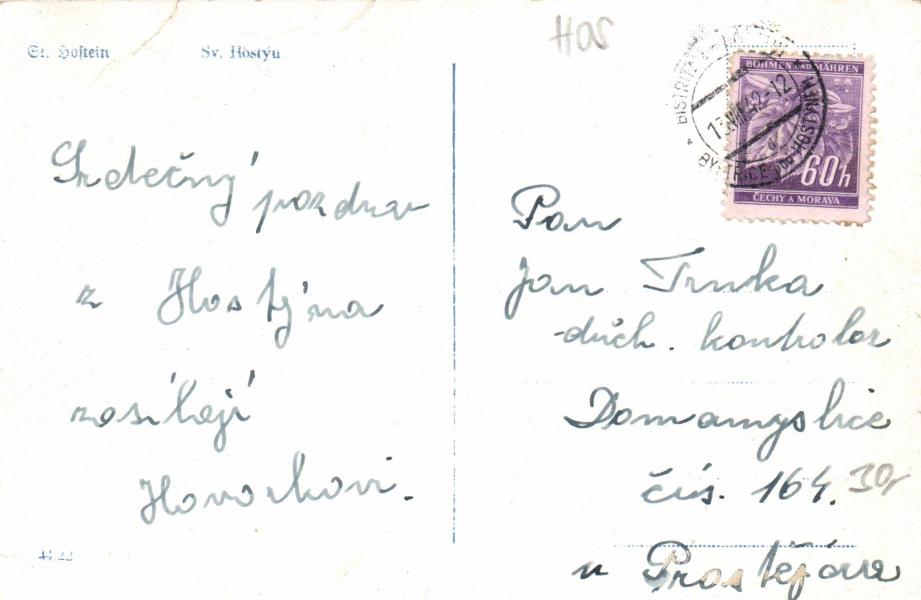 St. Hostein
Sv. Hostýn
HOS
BÖHMEN UND MÄHREN
60h
ČECHY A MORAVA
BYSTŘICE pod HOSTÝNEM
13.VIII.42-12
Srdečný
pozdrav
z Hostýna
zasílají
Hovorkovi.
Pan
Jan Trnka
důch. kontrolor
Domamyslice
čís. 164.
30,-
u Prostějova